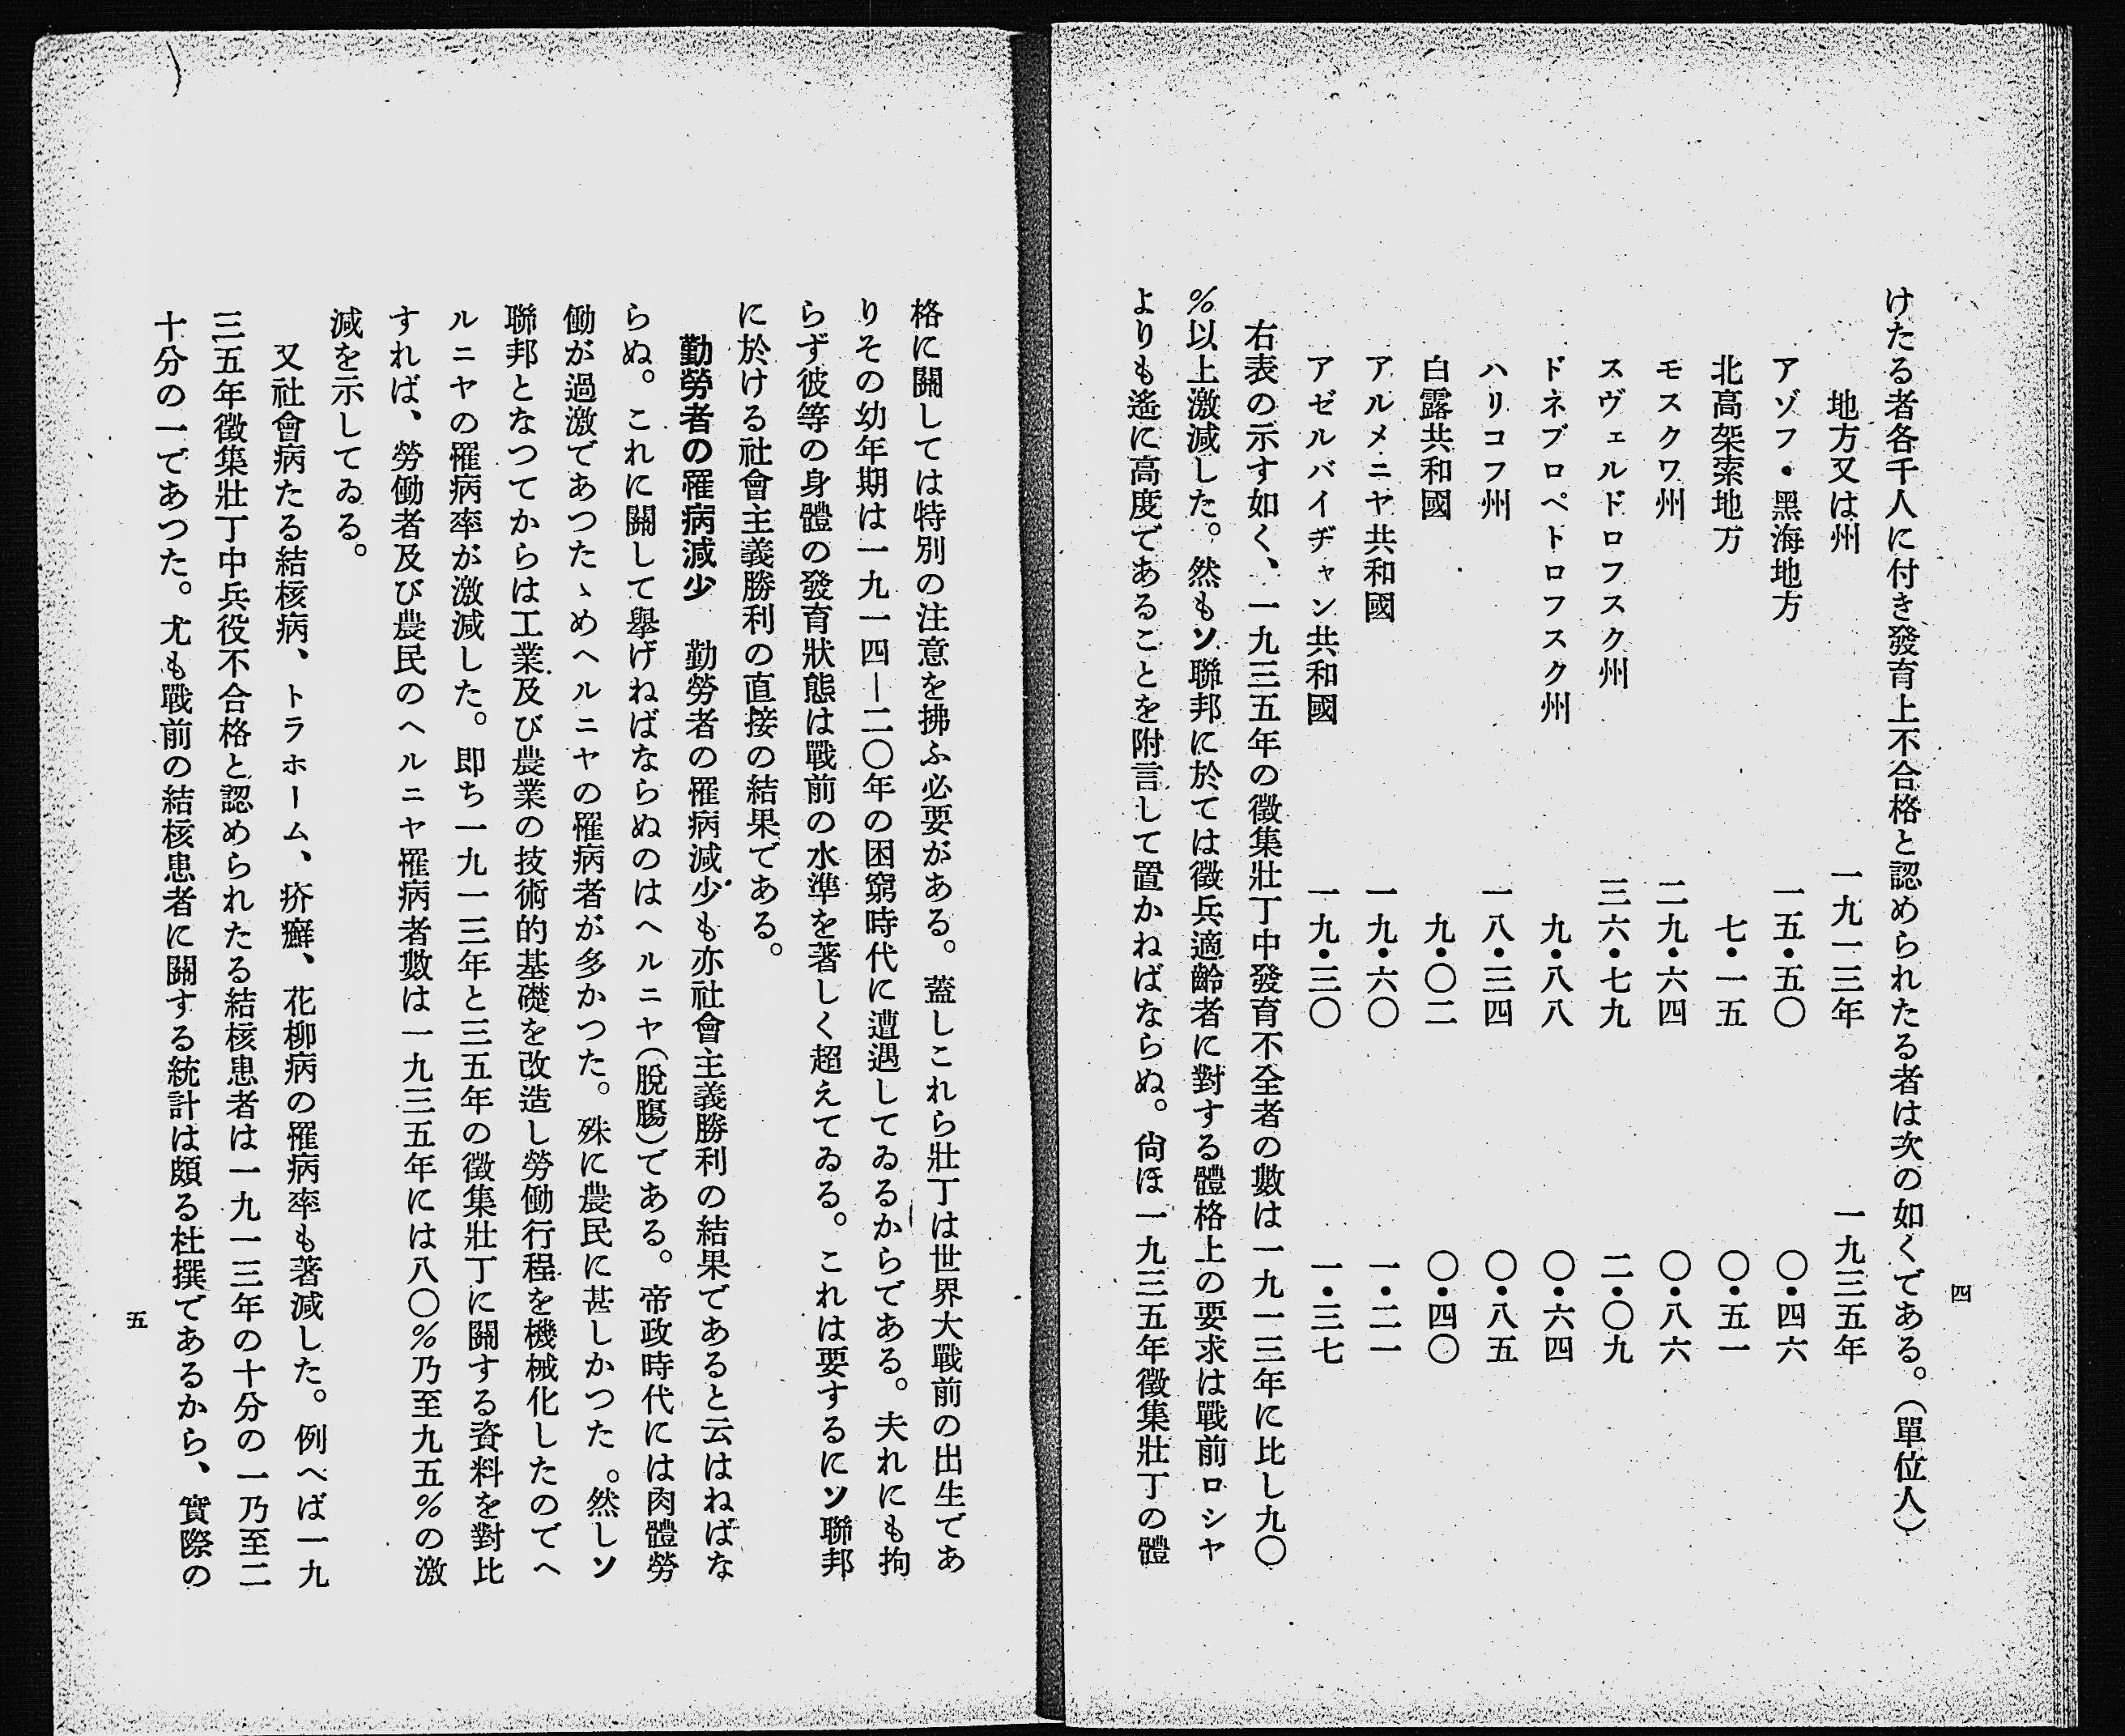 四
けたる者各千人に付き發育上不合格と認められたる者は次の如くである。（單位人）
地方又は州　一九一三年　一九三五年
アゾフ・黑海地方　一五・五〇　〇・四六
北高架索地方　七・一五　〇・五一
モスクワ州　二九・六四　〇・八六
スヴェルドロフスク州　三六・七九　二・〇九
ドネブロペトロフスク州　九・八八　〇・六四
ハリコフ州　一八・三四　〇・八五
白露共和國　九・〇二　〇・四〇
アルメニヤ共和國　一九・六〇　一・二一
アゼルバイヂャン共和國　一九・三〇　一・三七
右表の示す如く、一九三五年の徵集壯丁中發育不全者の數は一九一三年に比し九〇
％以上激減した。然もソ聯邦に於ては徵兵適齡者に對する體格上の要求は戰前ロシヤ
よりも遙に高度であることを附言して置かねばならぬ。尙ほ一九三五年徵集壯丁の體
格に關しては特別の注意を拂ふ必要がある。蓋しこれら壯丁は世界大戰前の出生であ
りその幼年期は一九一四—二〇年の困窮時代に遭遇してゐるからである。夫れにも拘
らず彼等の身體の發育狀態は戰前の水準を著しく超えてゐる。これは要するにソ聯邦
に於ける社會主義勝利の直接の結果である。
勤勞者の罹病減少　勤勞者の罹病減少も亦社會主義勝利の結果であると云はねばな
らぬ。これに關して擧げねばならぬのはヘルニヤ（脫腸）である。帝政時代には肉體勞
働が過激であつたゝめヘルニヤの罹病者が多かつた。殊に農民に甚しかつた。然しソ
聯邦となつてからは工業及び農業の技術的基礎を改造し勞働行程を機械化したのでヘ
ルニヤの罹病率が激減した。卽ち一九一三年と三五年の徵集壯丁に關する資料を對比
すれば、勞働者及び農民のヘルニヤ罹病者數は一九三五年には八〇％乃至九五％の激
減を示してゐる。
又社會病たる結核病、トラホーム、疥癬、花柳病の罹病率も著減した。例へば一九
三五年徵集壯丁中兵役不合格と認められたる結核患者は一九一三年の十分の一乃至二
十分の一であつた。尤も戰前の結核患者に關する統計は頗る杜撰であるから、實際の
五